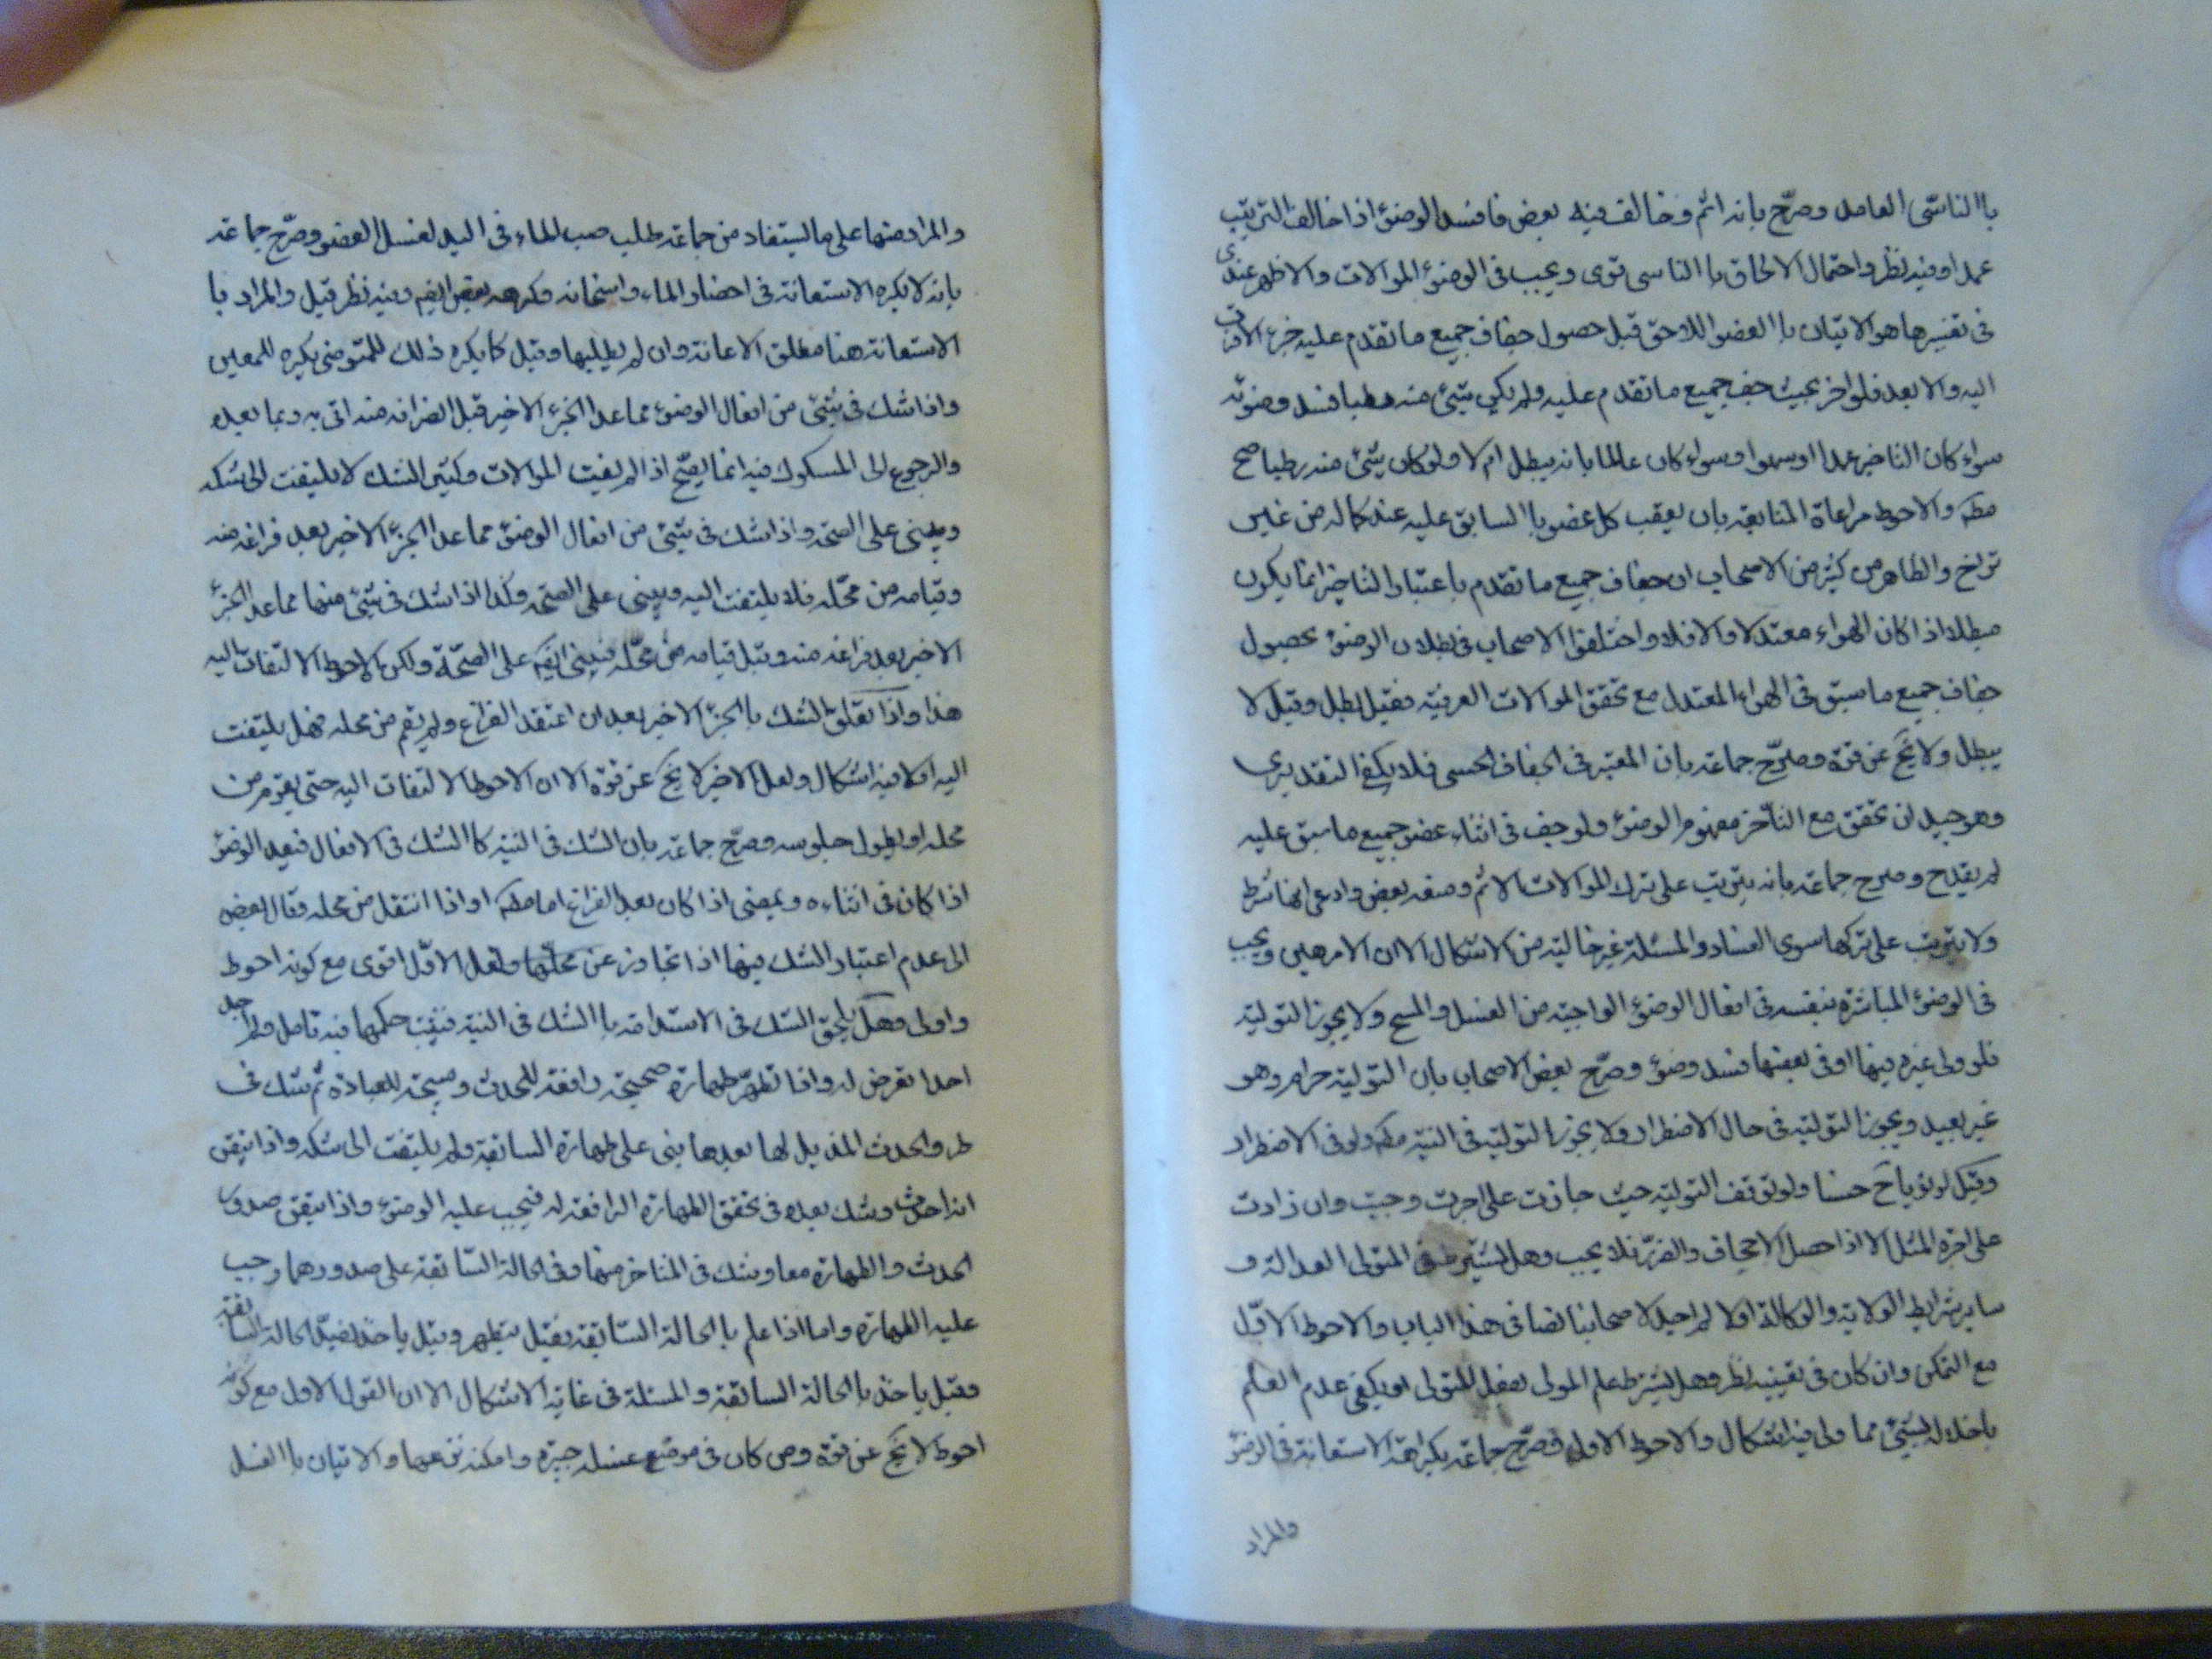 باالناسی العامد وصرّح بانه اثم وخالف فیه بعض فافسد الوضوء اذا خالف الترتیب
عمدا وفیه نظر واحتمال الالحاق باالناسی قوی ویجب فی الوضوء الموالات والاظهر عندی
فی تفسیرها هو الاتیان باالعضو اللاحق قبل حصول جفاف جمیع ما تقدم علیه
الیه والابعد فلو اخر بحیث جف جمیع ما تقدم علیه ولم یکن شیئ منه رطبا فسد وضوئه
سواء کان التاخیر عمدا او سهوا وسواء کان عالما بانه یبطل ام لا ولو کان شیئ منه رطبا صح
مطم والاحوط مراعاة المتابعة بان یعقب کل عضو باالسابق علیه عند کماله من غیر
تراخ والظاهر من کثیر من الاصحاب ان جفاف جمیع ما تقدم باعتبار التاخیر انما یکون
مبطلا اذا کان الهواء معتدلا والا فلا واختلفوا الاصحاب فی بطلان الوضوء بحصول
جفاف جمیع ما سبق فی الهواء المعتدل مع تحقق الموالات العرفیّة فقیل یبطل وقیل لا
یبطل ولا یخ عن قوة وصرّح جماعة بان المعتبر فی الجفاف الحسی فلا یکفی التقدیری
وهو جید ان تحقق مع التاخر مفهوم الوضوء ولو جف فی اثناء عضو جمیع ما سبق علیه
لم یقدح وصرح جماعة بانه یترتب علی ترک الموالات الاثم وضعفه بعض وادعی انها شرط
ولا یترتب علی ترکها سوی الفساد والمسئلة غیر خالیة من الاشکال الا ان الامر هین ویجب
فی الوضوء المباشرة بنفسه فی افعال الوضوء الواجبة من الغسل والمسح ولا یجوز التولیة
فلو ولی غیره فیها او فی بعضها فسد وضوء وصرّح بعض الاصحاب بان التولیة حرام وهو
غیر بعید ویجوز التولیة فی حال الاضطرار ولا یجوز التولیة فی النیّة مطم ولو فی الاضطرار
وقیل لو نویا ح حسنا ولو توقف التولیة حیث جازت علی اجرت وجبت وان زادت
علی اجرة المثل الا اذا حصل الاجحاف والضرر فلا یجب وهل یشترط فی المتولی العدالة و
سایر شرایط الولایة والوکالة او لا لم اجد لاصحابنا نصا فی هذا الباب والاحوط الاوّل
مع التمکن وان کان فی تعینه نظر وهل یشترط علم المولی بفعل المتولی او یکفی عدم العلم
باخلاله بشیئ مما ولی فیه اشکال والاحوط الاول وصرّح جماعة بکراهة الاستعانة فی الوضوء
والمراد
والمراد منها علی ما یستفاد من جماعة طلب صب الماء فی الید لغسل العضو وصرّح جماعة
بانه لا یکره الاستعانة فی احضار الماء واسخانه وکرهه بعض ایضم وفیه نظر قیل والمراد با
الاستعانة هنا مطلق الاعانة وان لم یطلبها وقیل کما یکره ذلک للمتوضی یکره للمعین
واذا شک فی شیئ من افعال الوضوء مما عدا الجزء الاخیر قبل انصرافه منه اتی به وبما بعده
والرجوع الی المشکوک فیه انما یصح اذا لم یفت الموالات وکثیر الشک لا یلتفت الی شکه
ویبنی علی الصحة واذا شک فی شیئ من افعال الوضوء مما عدا الجزء الاخیر بعد فراغه منه
وقیامه من محّله فلا یلتفت الیه ویبنی علی الصحّة وکذا اذا شک فی شیئ منها مما عدا الجزء
الاخیر بعد فراغه منه وقبل قیامه من محّله فیبنی ایضم علی الصحّة ولکن الاحوط الالتفات الیه
هذا واذا تعلّق الشک باالجزء الاخیر بعد ان اعتقد الفراغ ولم یقم من محله فهل یلتفت
الیه او لا فیه اشکال ولعل الاخیر لا یخ عن قوة الا ان الاحوط الالتفات الیه حتی یقوم من
محله او یطول جلوسه وصرّح جماعة بان الشک فی النیة کاالشک فی الافعال فیعید الوضوء
اذا کان فی اثناءه ویمضی اذا کان بعد الفراغ اما مطم او اذا انتقل من محله وقال بعض
الی عدم اعتبار الشک فیها اذا تجاوز عن محلّها ولعل الاوّل اقوی مع کونه احوط
واولی وهل یلحق الشک فی الاستدامة باالشک فی النیة فیثبت حکمها فیه تامل ولم اجد
احدا تعرض له واذا تطهّر طهارة صحیحة رافعة للحدث ومبیحة للعبادة ثم شک فی
طرو الحدث المزیل لها بعدها بنی علی طهارة السابقة ولم یلتفت الی شکه واذا تیقن
انه احدث وشک بعده فی تحقق الطهارة الرافعة له فیجب علیه الوضوء واذا تیقن صدور
الحدث والطهارة معا وشک فی المتاخر منهما وفی الحالة السّابقة علی صدورهما وجب
علیه الطهارة واما اذا علم باالحالة السّابقة فقیل یتطهر وقیل یاخذ بضدّ الحالة السابقة
وقیل یاخذ باالحالة السابقة والمسئلة فی غایة الاشکال الا ان القول الاول مع کونه
احوط لا یخ عن قوة ومن کان فی موضع غسله جبیرة وامکنه نزعها والاتیان باالغسل